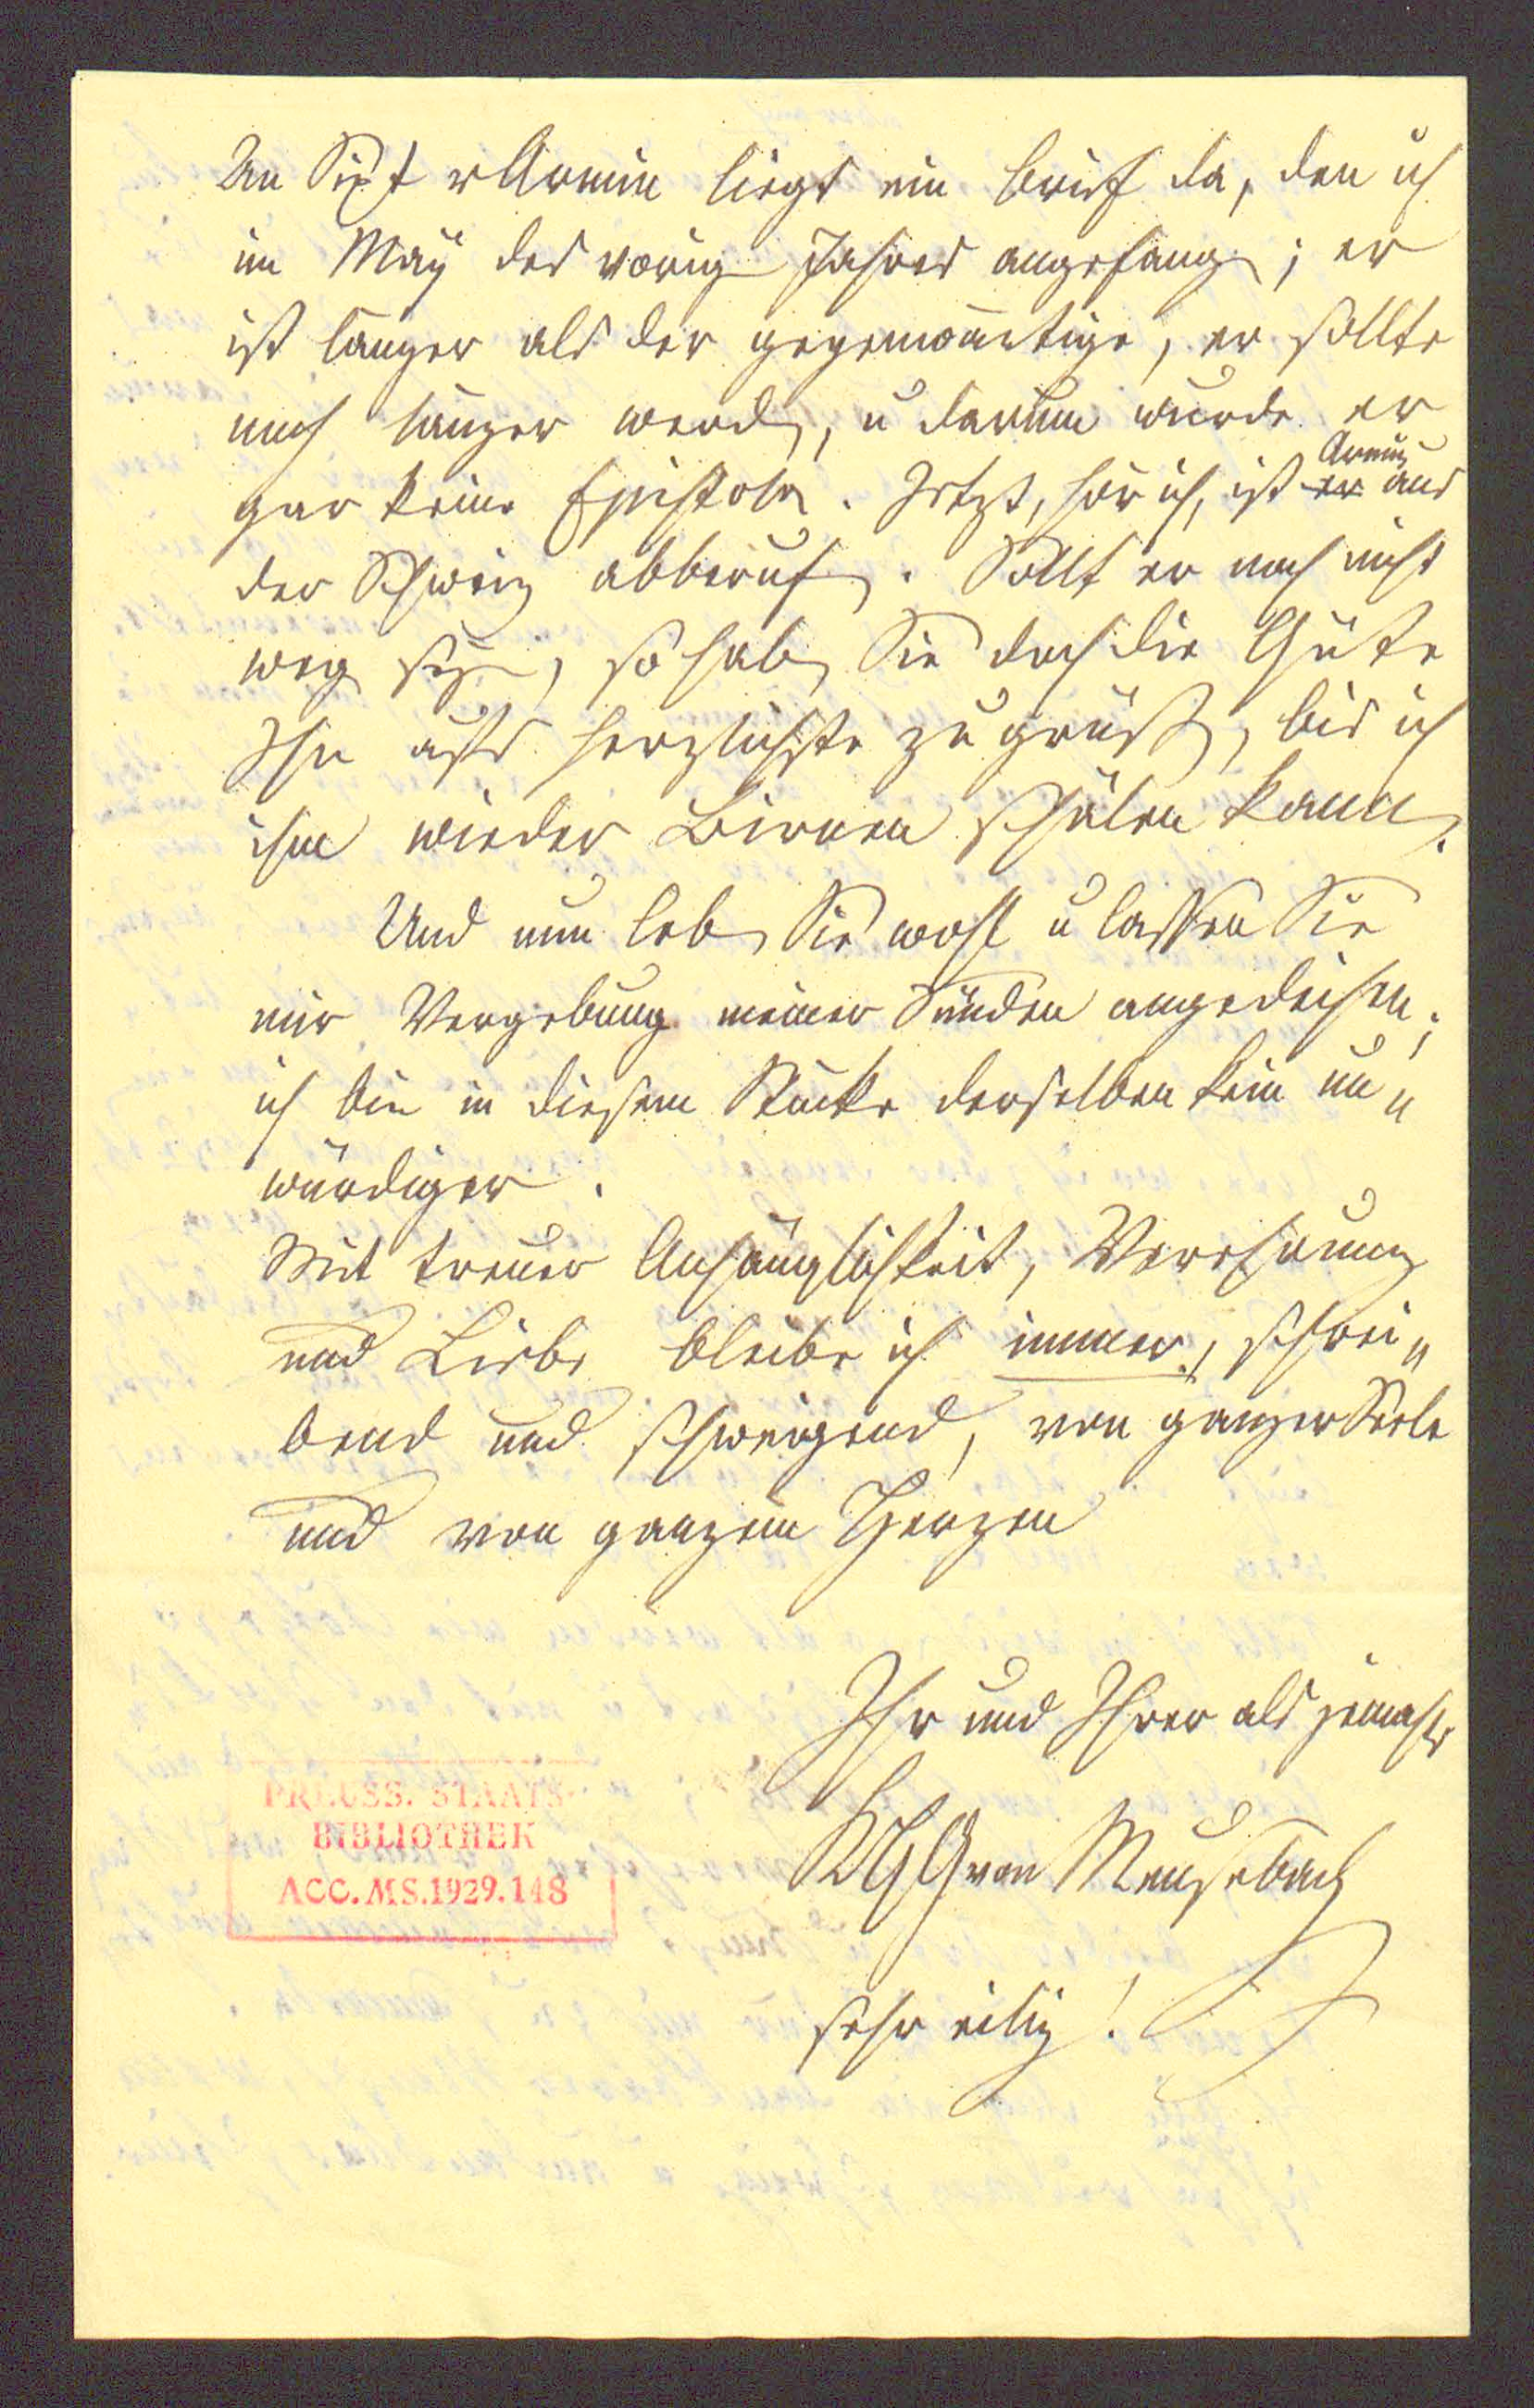 An Sixt v Armin liegt ein Brief da, den ich
im May des vorig Jahres angefang; er
ist länger als der gegenwärtige, er sollte
noch länger werd, u darum wurde er
gar keine Epistola. Jetzt, hör ich, ist er Armin aus
der Schweiz abberuf. Sollt er noch nicht
weg sey, so hab Sie doch die Güte
Ihn aufs herzlichste zu grüß, bis ich
ihm wieder Birnen schälen kann.
Und nun leb Sie wohl u lassen Sie
mir Vergebung meiner Sünden angedeihen;
ich bin in diesem Stücke derselben kein un„
würdiger.
Mit treuer Anhänglichkeit, Verehrung
und Liebe bleibe ich immer, schrei„
bend und schweigend, von ganzer Seele
und von ganzem Herzen
Ihr und Ihrer
KHG von Meusebach
sehr eilig!
PREUSS. STAATS-
BIBLIOTHEK
ACC. MS. 1929. 148